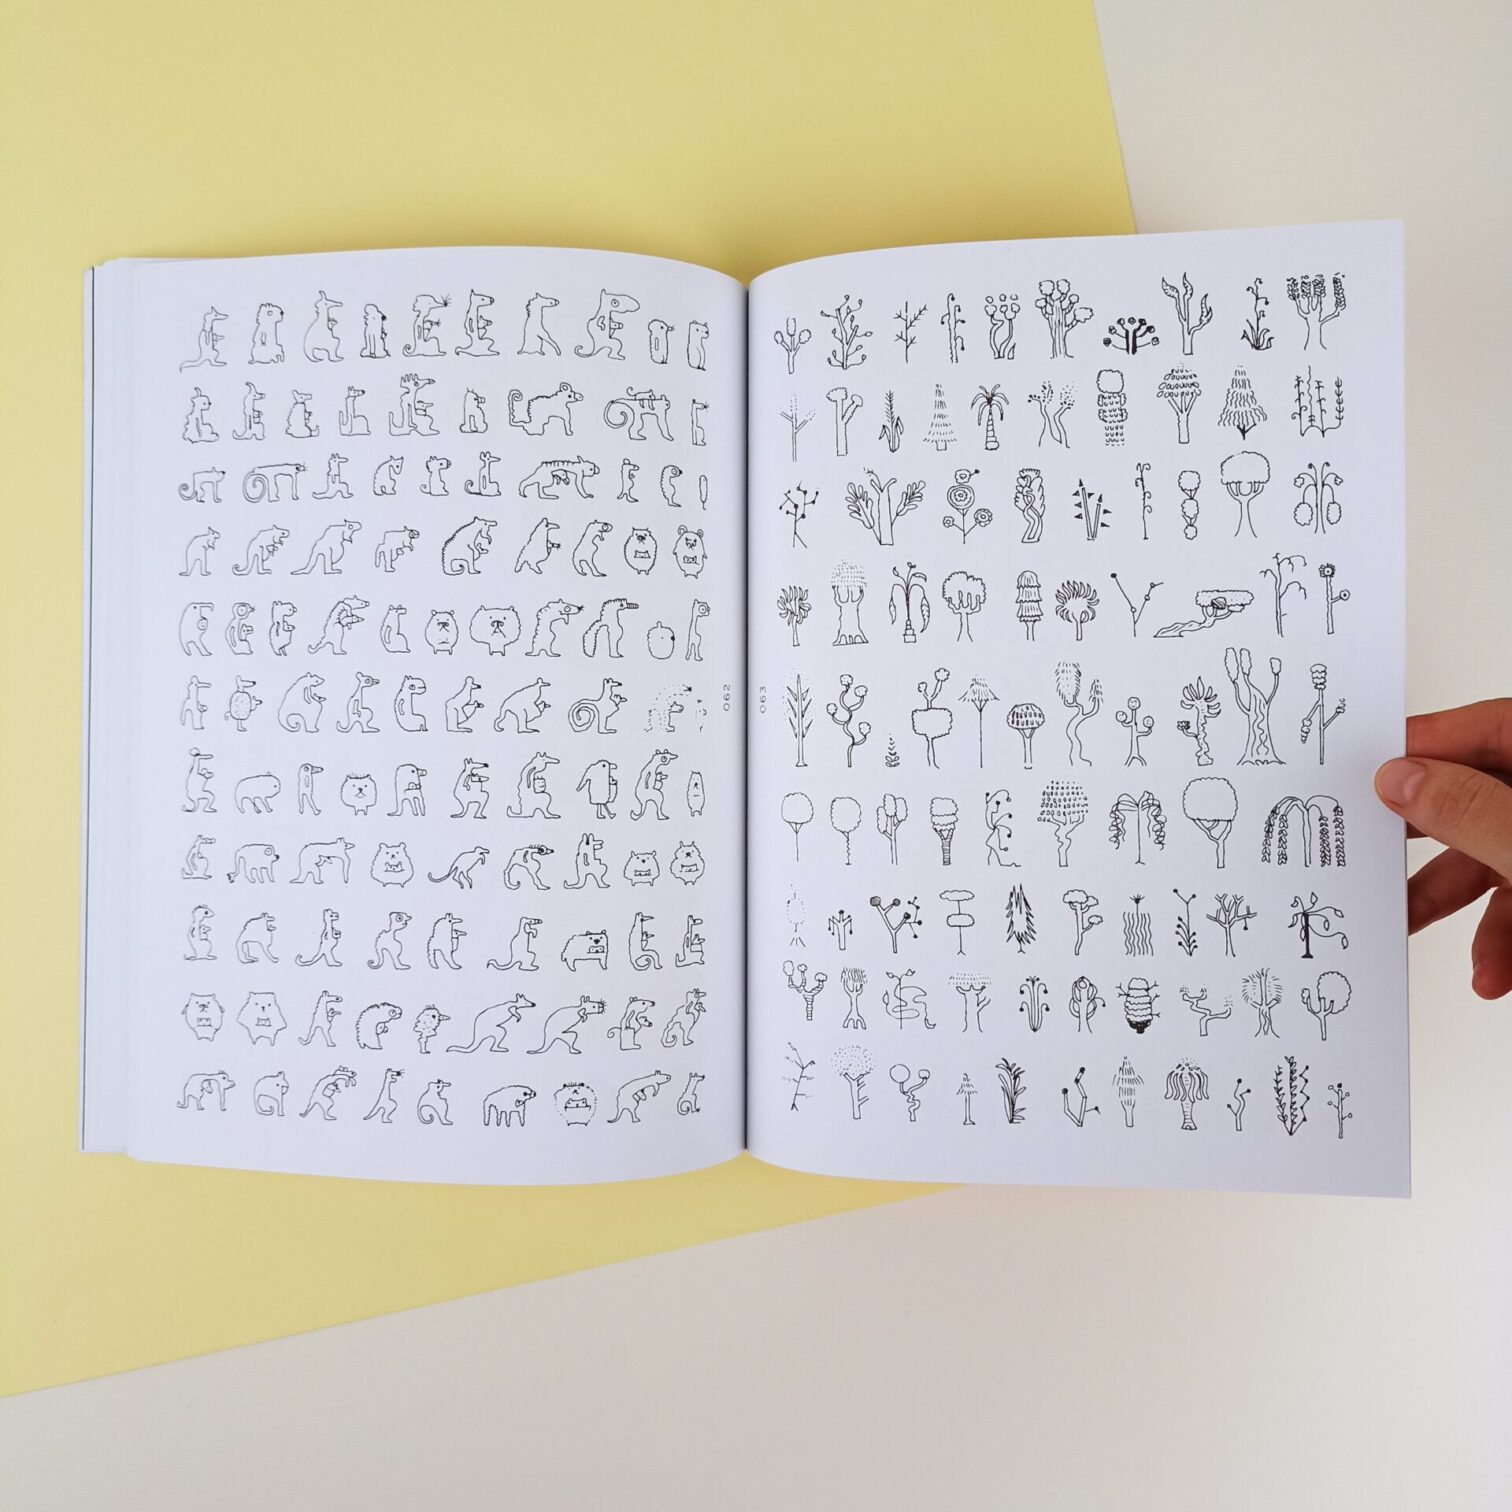 062
063